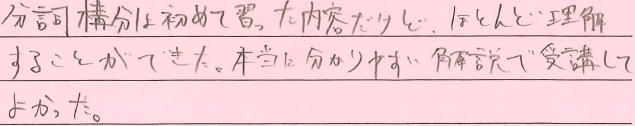 分詞構分は初めて習った内容だけど、ほとんど理解
することができた。本当に分かりやすい解説で受講して
よかった。